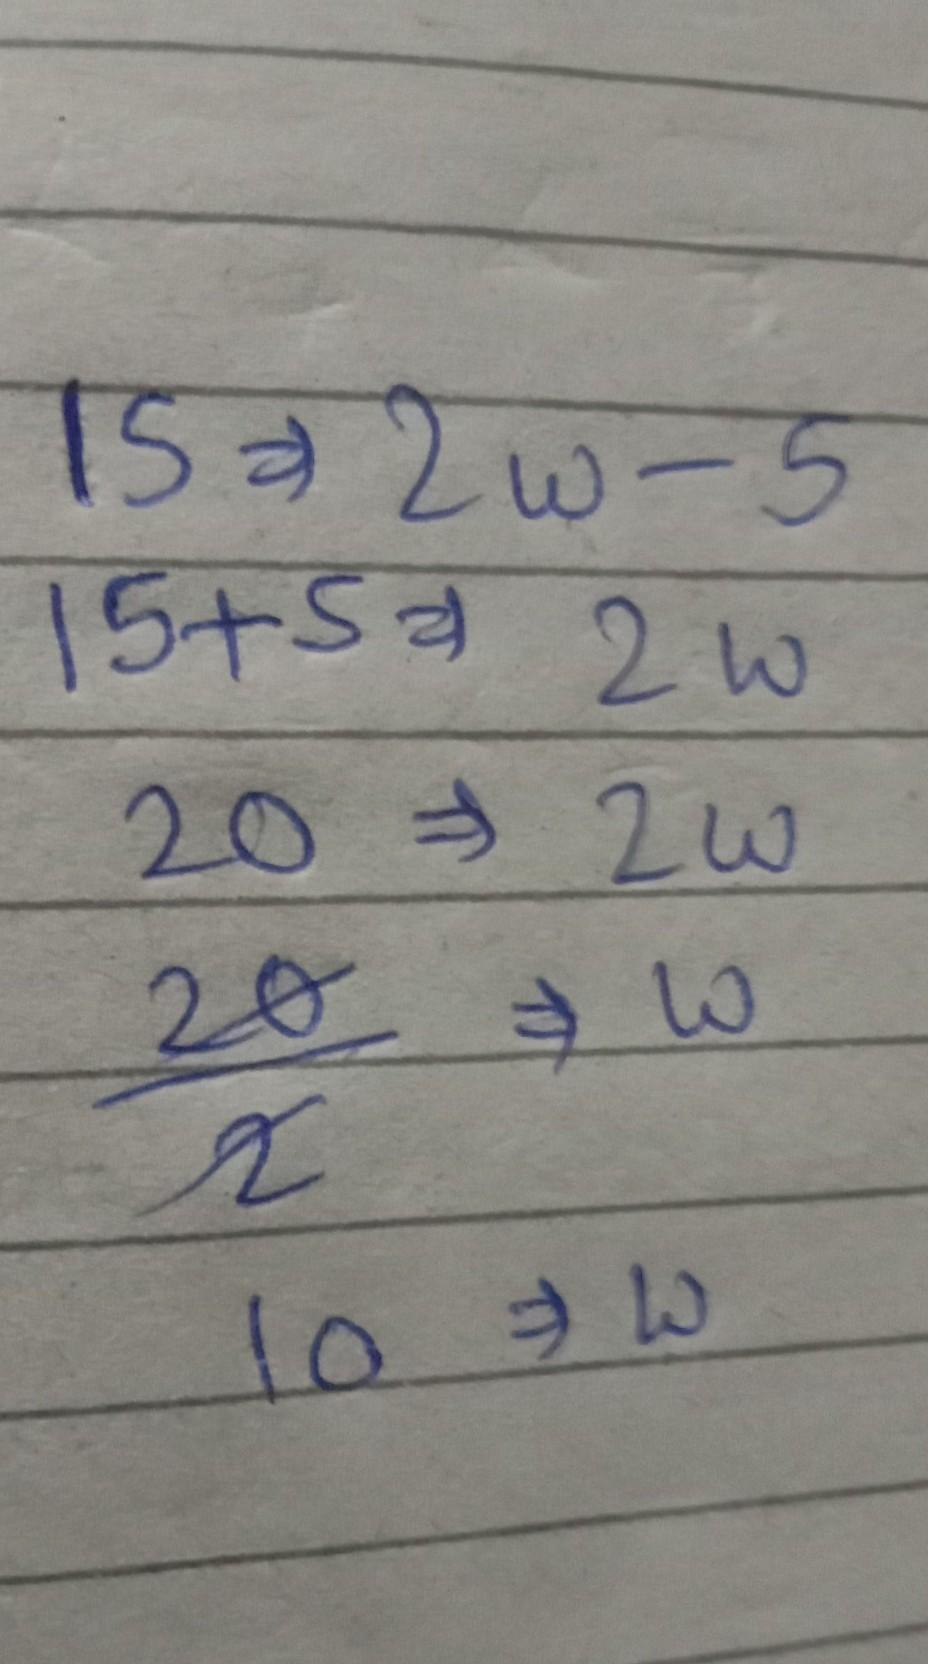 15 ⇒ 2w - 5
15+5 ⇒ 2w
20 ⇒ 2w
20/2 ⇒ w
10 ⇒ w